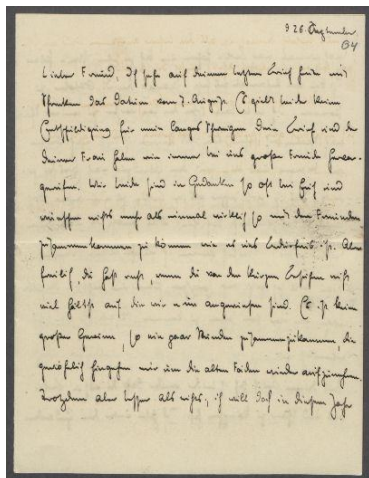 28. September
64
Lieber Freund, Ich sehe auf deinem letzten Brief heute mit
Schrecken das Datum vom 7. August. Es giebt leider keine
Entschuldigung für mein langes Schweigen. Dein Brief und der
deiner Frau haben wie immer bei uns große Freude hervor-
gerufen. Wir beide sind in Gedanken so oft bei Euch und
wünschen nichts mehr als einmal wirklich so mit den Freunden
zusammenkommen zu können wie es uns Bedürfnis ist. Aber
freilich, du hast recht, wenn du von den kurzen
viel hältst auf die wir nun angewiesen sind. Es ist kein
großer Gewinn, so ein paar Stunden zusammenzukommen, die
gewöhnlich hingehen nur um die alten Fäden wieder aufzunehmen.
Trotzdem aber besser als nichts, ich will doch in diesem Jahr